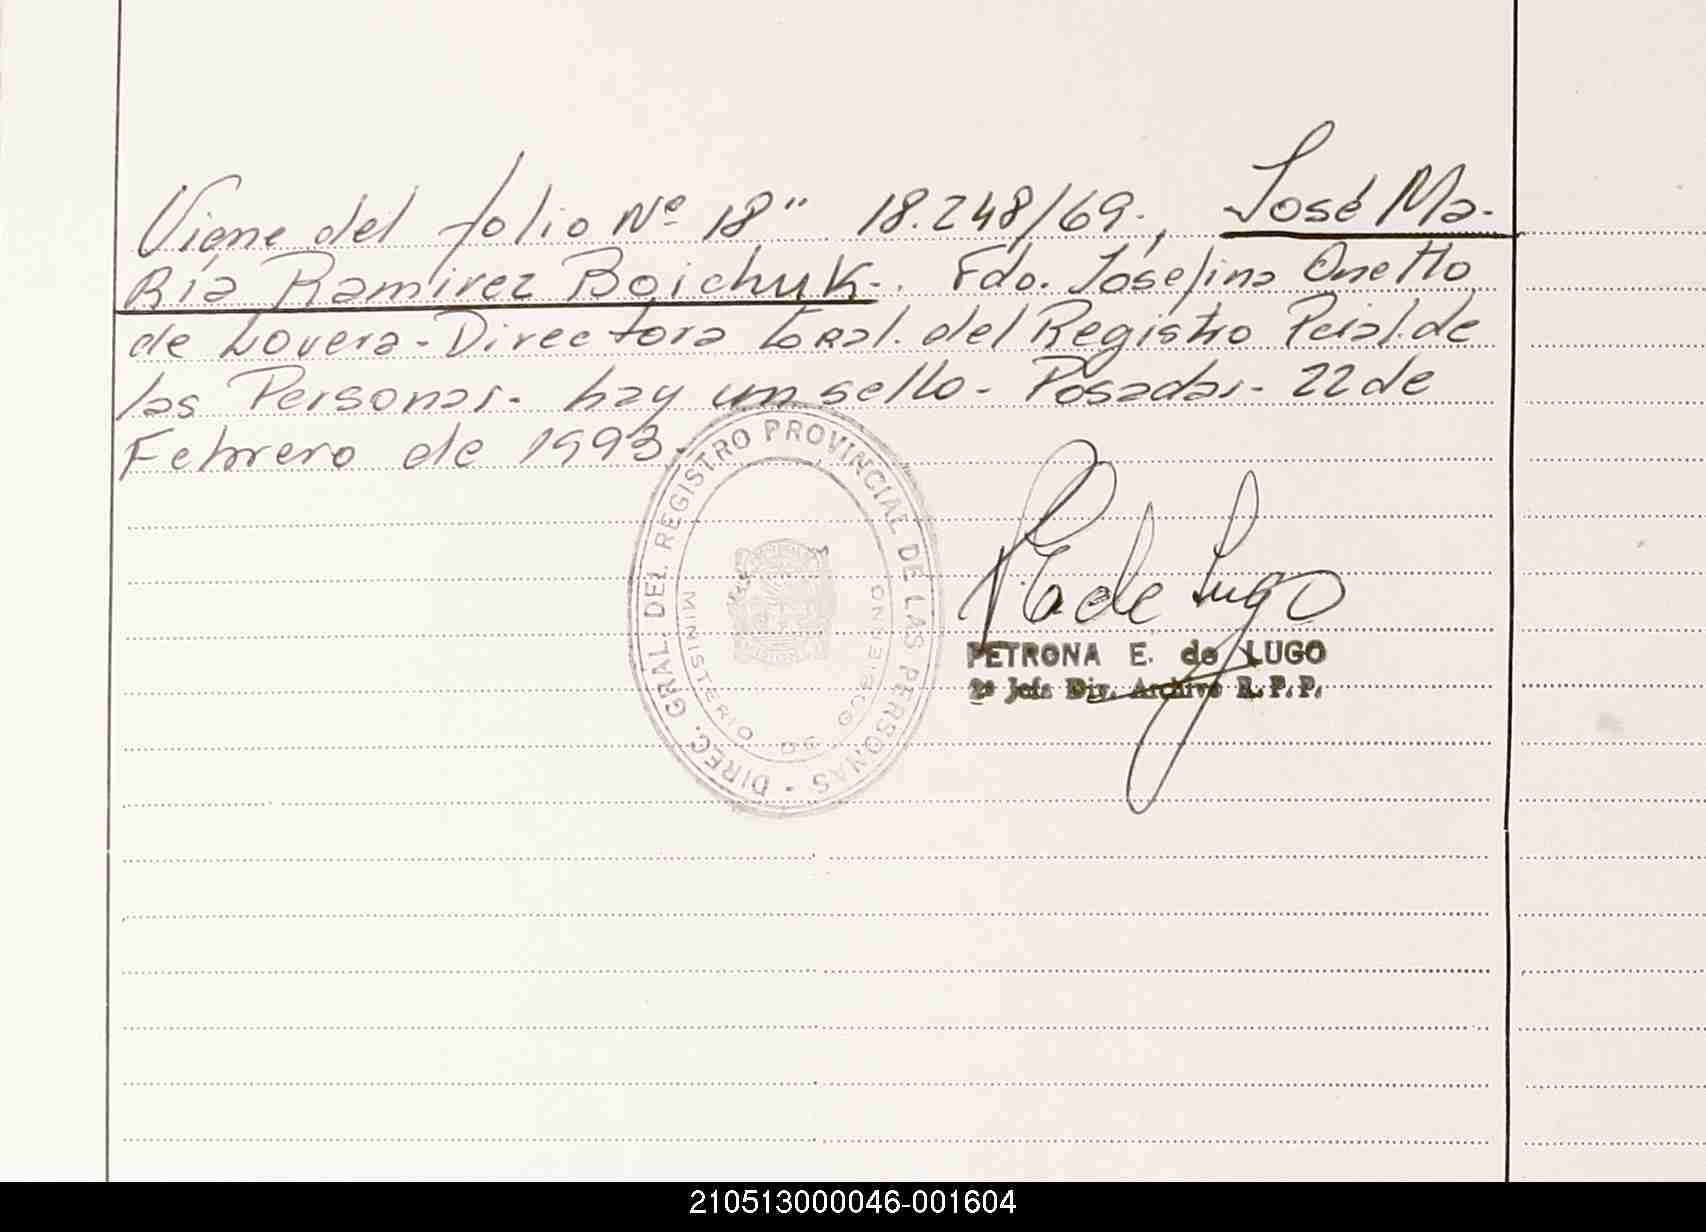 Viene del folio Nº 18" 18.248/69., José Ma-
Ría Ramirez Boichuk-. Fdo. Josefina Onetto
de Lovera - Directora Gral. del Registro Pcial. de
las Personas. - hay un sello - Posadas - 22 de
Febrero de 1993.
DIREC. GRAL. DEL REGISTRO PROVINCIAL DE LAS PERSONAS -
MINISTERIO DE GOBIERNO
PE de Lugo
PETRONA E. de LUGO
2º Jefe Div. Archivo R.P.P.
210513000046-001604